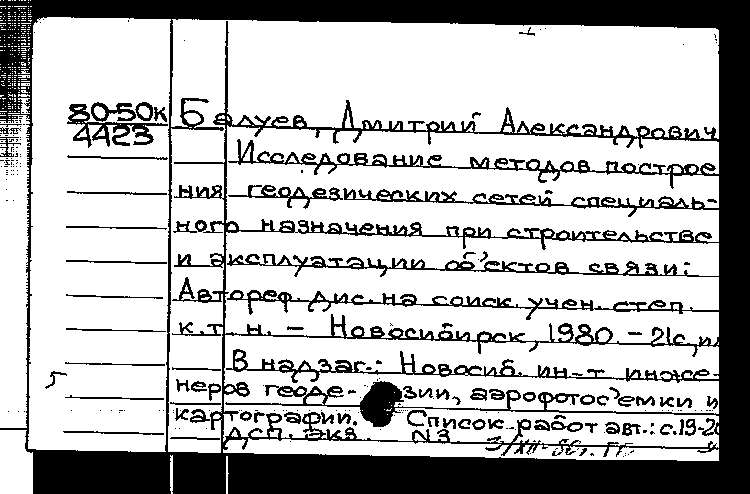 80-50к Балуев, Дмитрий Александрович
4423
Исследование методов построе
ния геодезических сетей специаль-
ного назначения при строительстве
и эксплуатации об'ектов связи:
Автореф. дис. на соиск. учен. степ.
к.т.н. – Новосибирск, 1980. – 21с, ил
В надзаг.: Новосиб. ин-т инже-
неров геоде- зии, аэрофотос'емки и
картографии. Список работ авт.: с.19-20
ДСП. экз. №3